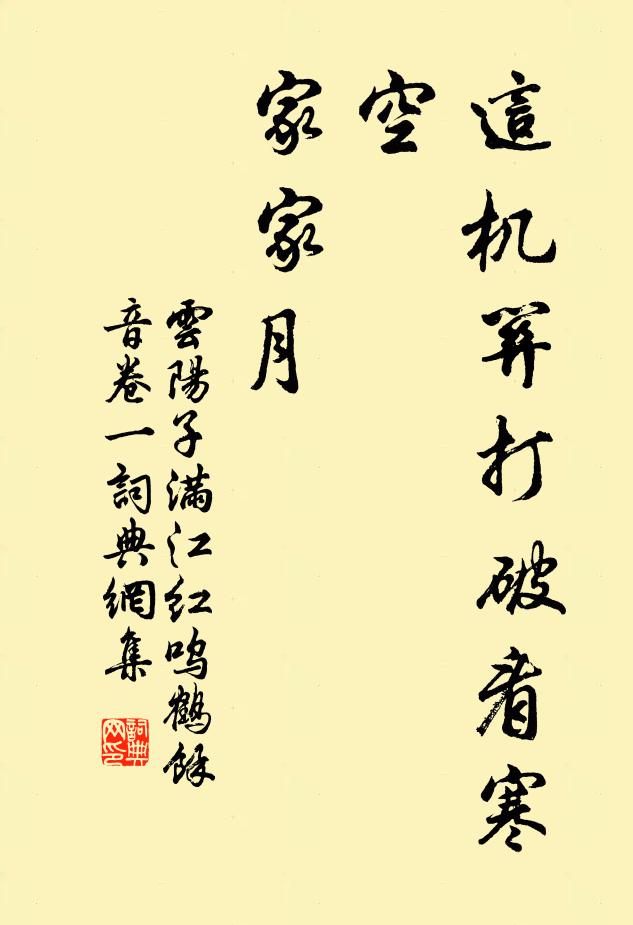 這机關打破看寒
空
家家月
雲陽子滿江红鳴鶴餘
音卷一詞典網集
詞典
网印